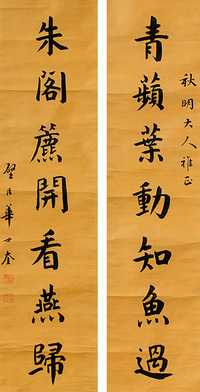 秋明大人雅正
青蘋葉動知魚過
朱閣簾開看燕歸
華世奎